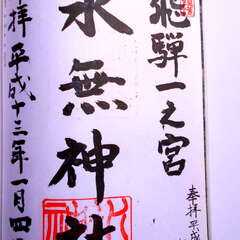 飛騨一之宮
水無神社
拝 平成十三年一月四日
奉拝 平成